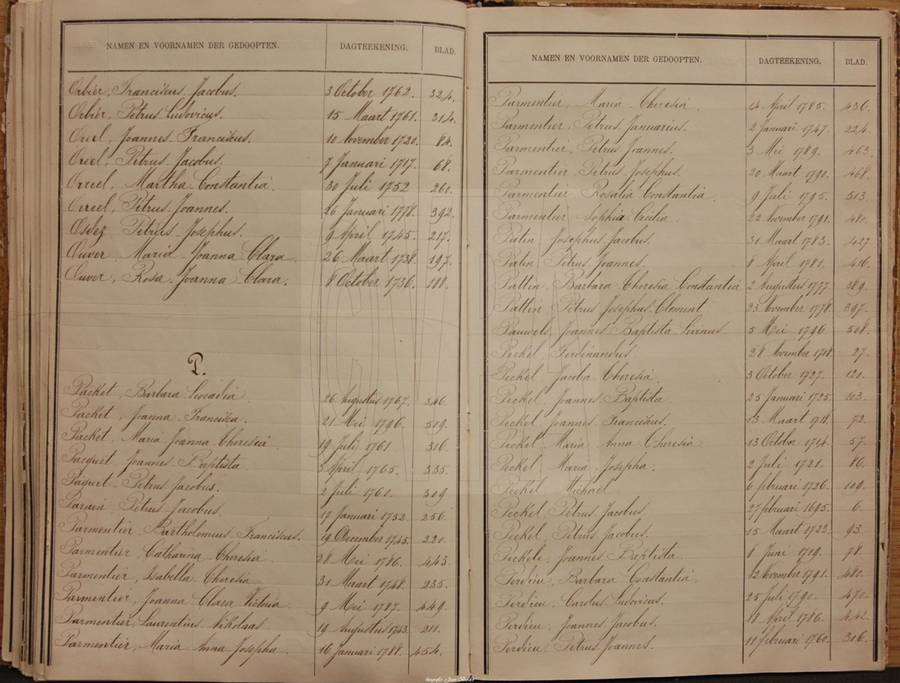 NAMEN EN VOORNAMEN DER GEDOOPTEN. DAGTEEKENING. BLAD.
Orbier, Franciscus Jacobus. 3 October 1762. 324.
Orbier, Petrus Ludovicus. 15 Maart 1761. 314.
Orcel, Joannes Franciscus. 10 November 1720. 84.
Orcel, Petrus Jacobus. 7 Januari 1717. 68.
Orreel, Martha Constantia. 30 Juli 1752 260.
Orreel, Petrus Joannes. 26 Januari 1778. 392.
Petrus Josephus. 9 April 1745. 217.
Ouver, Maria Joanna Clara 26 Maart 1738. 197.
Ouver, Rosa Joanna Clara. 8 October 1736. 188.
P.
Packet, Barbara Leocadia 26 Augustus 1767. 346.
Packet, Joanna Francisca. 21 Mei 1796. 509.
Packet, Maria Joanna Theresia 19 Juli 1761 316.
Pacquet, Joannes Baptista 3 April 1765. 335.
Paquet, Petrus Jacobus. 2 Juli 1760. 309
Parain, Petrus Jacobus. 17 Januari 1752. 256.
Parmentier, Bartholomeus Franciscus. 19 December 1745. 220.
Parmentier, Catharina Theresia 28 Mei 1786. 443.
Parmentier, Isabella Theresia 31 Maart 1748. 235.
Parmentier, Joanna Clara Victoria 9 Mei 1787. 449.
Parmentier, Laurentius Nikolaas 19 Augustus 1743. 211.
Parmentier, Maria Anna Josepha. 16 Januari 1788. 454.
NAMEN EN VOORNAMEN DER GEDOOPTEN. DAGTEEKENING. BLAD.
Parmentier, Maria Theresia 14 April 1785. 436.
Parmentier, Petrus Januarius. 2 Januari 1747. 224.
Parmentier, Petrus Joannes. 3 Mei 1789. 463.
Parmentier, Petrus Josephus. 20 Maart 1790. 468.
Parmentier, Rosalia Constantia. 9 Juli 1795. 503.
Parmentier, Sophia Cecilia 22 November 1791. 480.
Patin, Josephus Jacobus. 31 Maart 1783. 427
Patin, Petrus Joannes. 8 April 1781. 416.
Pattin, Barbara Theresia Constantia 2 Augustus 1777. 389.
Pattin, Petrus Josephus Clement 23 November 1778. 397.
Pauwels, Joannes Baptista Livinus 5 Mei 1796. 508.
Peckel, Ferdinandus 28 November 27.
Peckel, Jacoba Theresia. 3 October 1727. 120.
Peckel, Joannes Baptista 25 Januari 1725. 103.
Peckel, Joannes Franciscus. 13 Maart 72.
Peckel, Maria Anna Theresia 13 October 57.
Peckel, Maria Josepha. 2 Juli 1721. 86.
Peckel, Michael 6 Februari 1726. 109.
Peckel, Petrus Jacobus. 27 Februari 1695. 6.
Peckel, Petrus Jacobus. 15 Maart 1722. 93.
Peckele, Joannes Baptista 8 Juni 1719. 78.
Perdieu, Barbara Constantia 12 November 1791. 480.
Perdieu, Carolus Ludovicus. 25 Juli 1790. 470.
Perdieu, Joannes Jacobus. 17 April 1786. 442.
Perdieu, Petrus Joannes. 10 Februari 1760. 306.